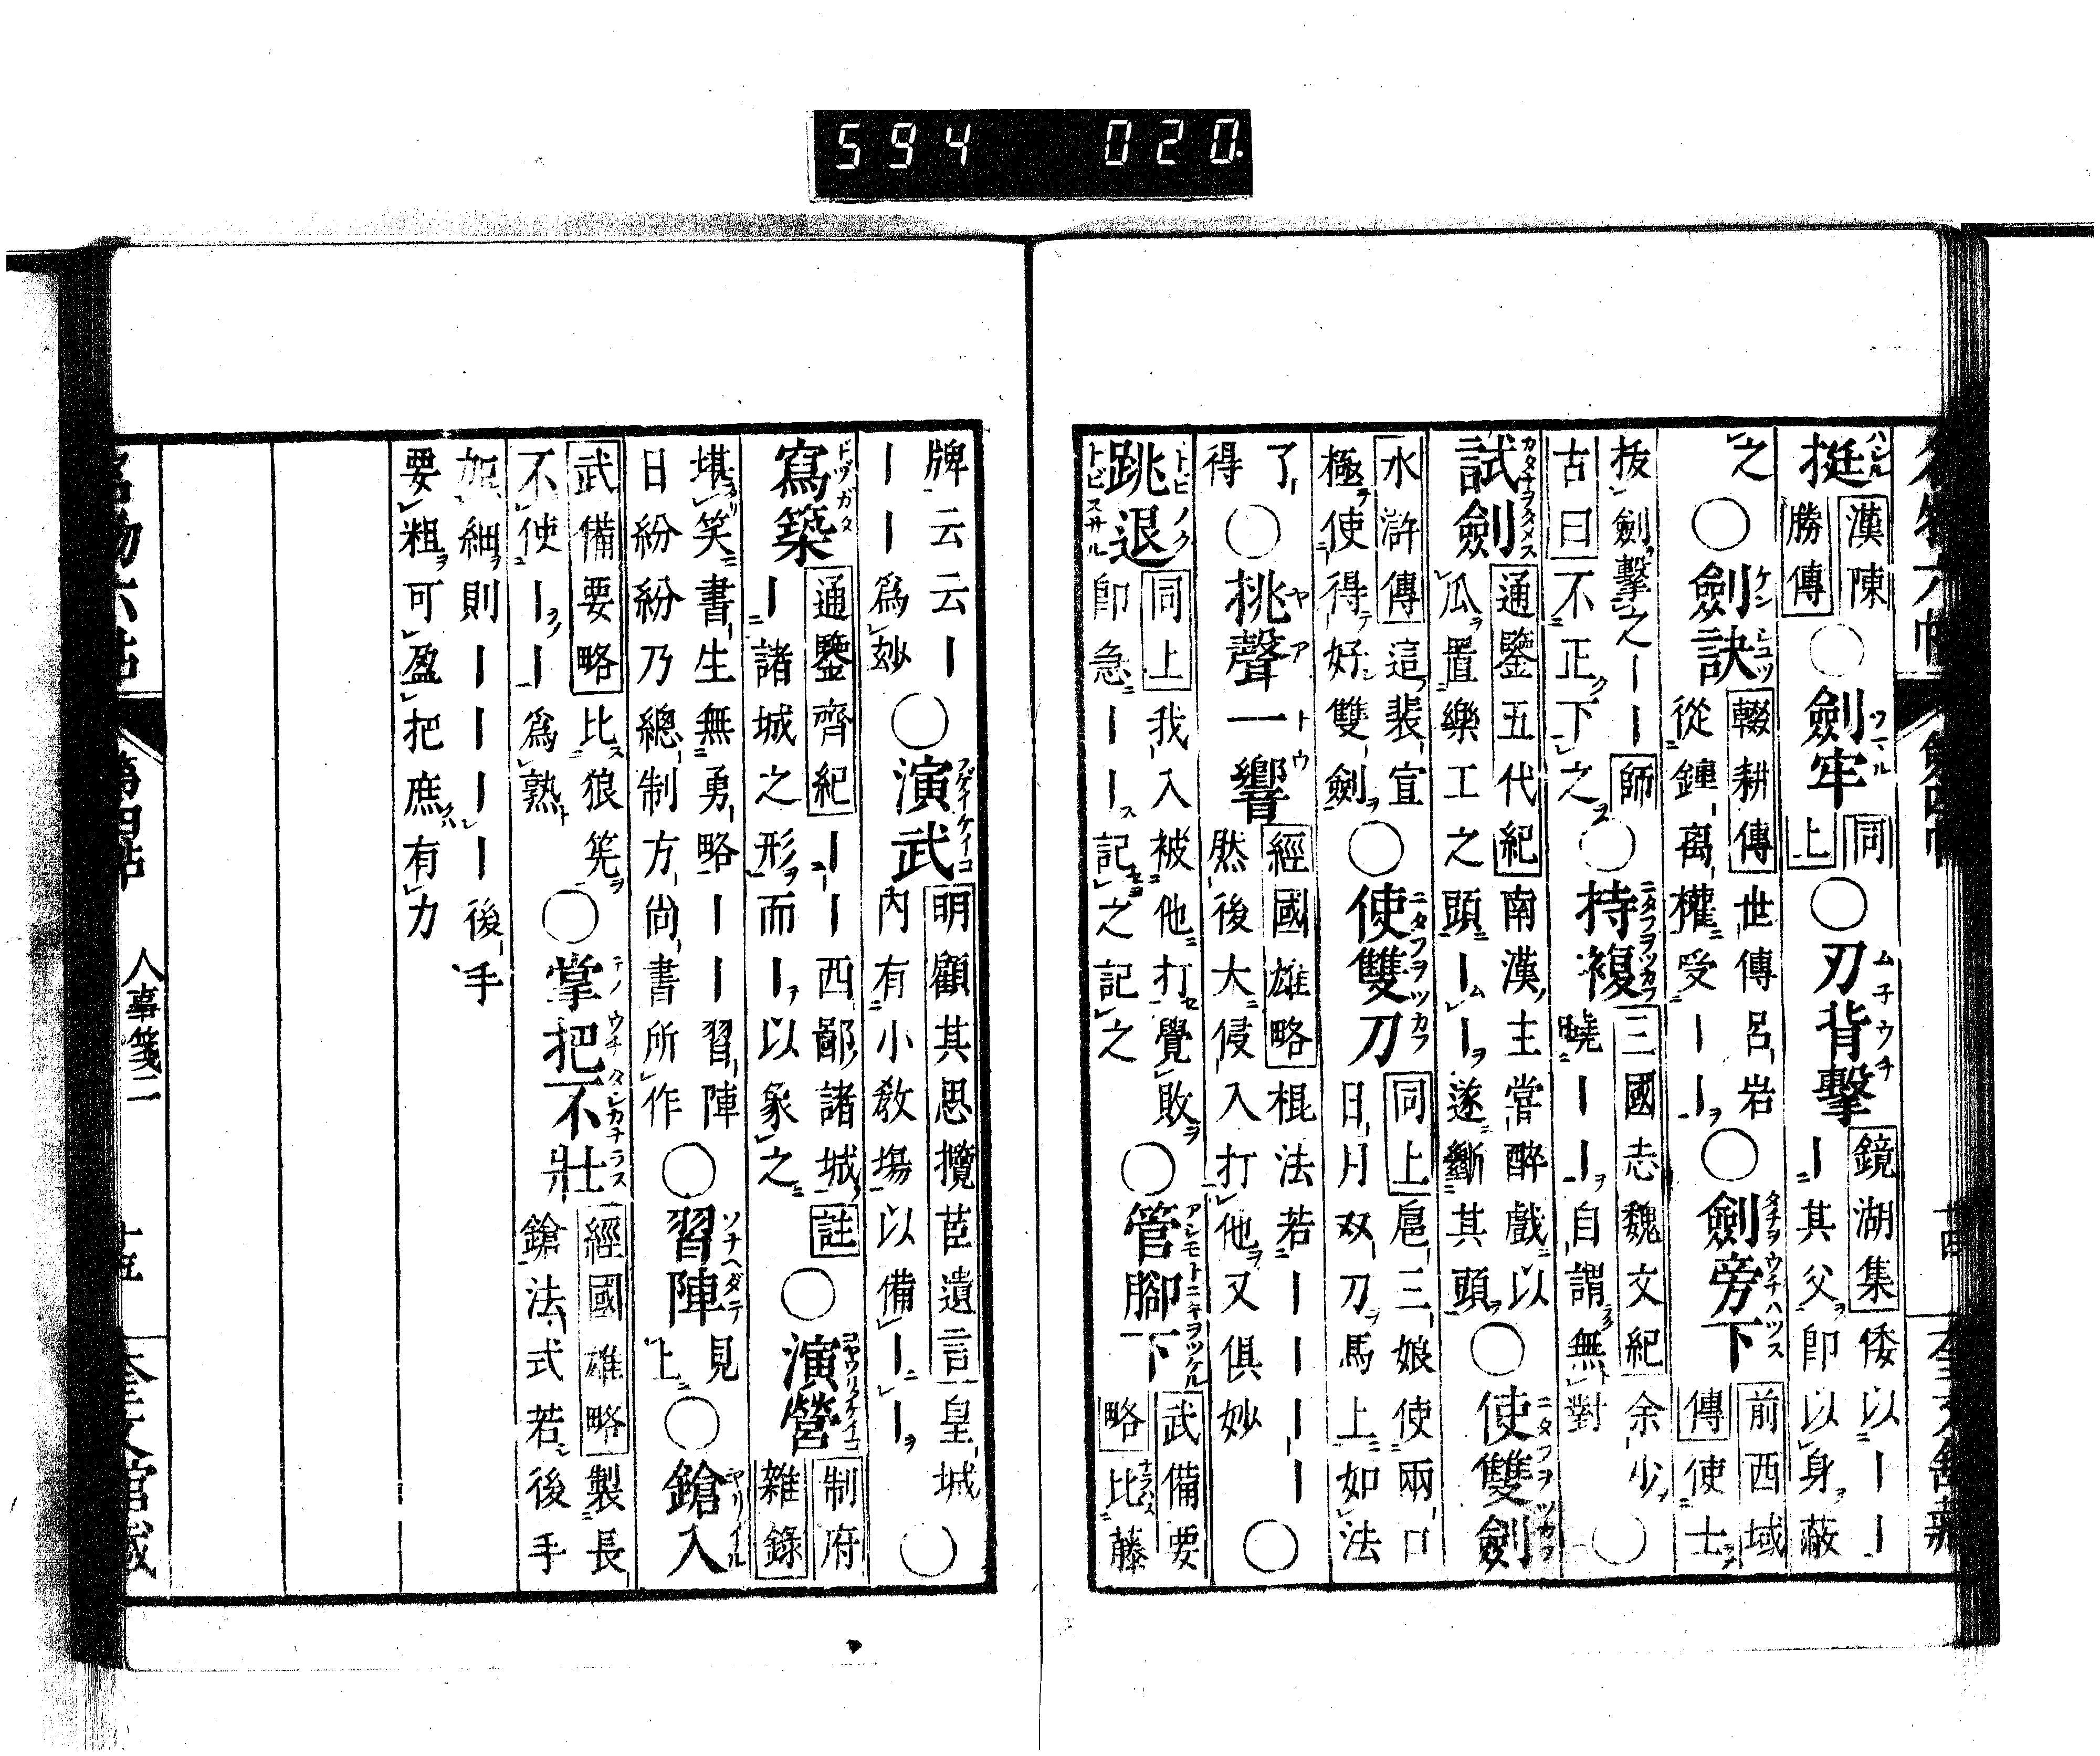 594 020.
挺 漢陳勝傳 ○劍牢 同上 ○刃背擊 鏡湖集 倭以｜｜｜其父即以身蔽
之 ○劍訣 輟耕傳 世傳呂岩從鍾离權受｜｜ ○劍旁下 前西域傳 使士
拔劍擊之｜｜師古曰不正下之 ○持複 三國志魏文紀 余少曉｜｜自謂無對 ○
試劍 通鑒五代紀 南漢主嘗醉戲以瓜置樂工之頭｜｜遂斷其頭 ○使雙劍
水滸傳 這裴宣極使得好雙劍 ○使雙刀 同上 扈三娘使兩口日月双刀馬上如法
了得 ○挑聲一響 經國雄略 棍法若｜｜｜｜然後大侵入打他又俱妙 ○
跳退 同上 我入被他打覺敗即急｜｜記之記之 ○管腳下 武備要略 比藤
牌云云｜｜｜為妙 ○演武 明顧其思攬茞遺言 皇城內有小教場以備｜｜ ○
寫築 通鑒齊紀 ｜｜西鄙諸城 註 ｜諸城之形而｜以象之 ○演營 制府雜錄
堪笑書生無勇略｜｜習陣日紛紛乃總制方尚書所作 ○習陣 見上 ○鎗入
武備要略 比狼筅不使｜｜為熟 ○掌把不壯 經國雄略 製長鎗法式若後手
如細則｜｜｜｜後手要粗可盈把庶有力
名物六帖 第四帖 人事箋二 十五 奎文館藏